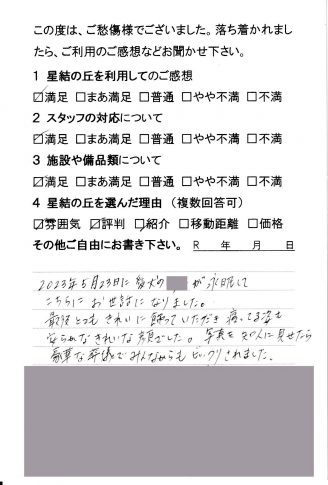 この度は、ご愁傷様でございました。落ち着かれまし
たら、ご利用のご感想などお聞かせ下さい。
1 星結の丘を利用してのご感想
☑満足 □まあ満足 □普通 □やや不満 □不満
2 スタッフの対応について
☑満足 □まあ満足 □普通 □やや不満 □不満
3 施設や備品類について
☑満足 □まあ満足 □普通 □やや不満 □不満
4 星結の丘を選んだ理由（複数回答可）
☑雰囲気 ☑評判 □紹介 □移動距離 □価格
その他ご自由にお書き下さい。 R 年 月 日
2023年5月23日に愛犬の が永眠して
こちらにお世話になりました。
最後とてもきれいに飾っていただき 姿も
安らかなきれいな顔でした。写真を知人に見せたら
豪華な葬儀でみんなからもビックリされました。